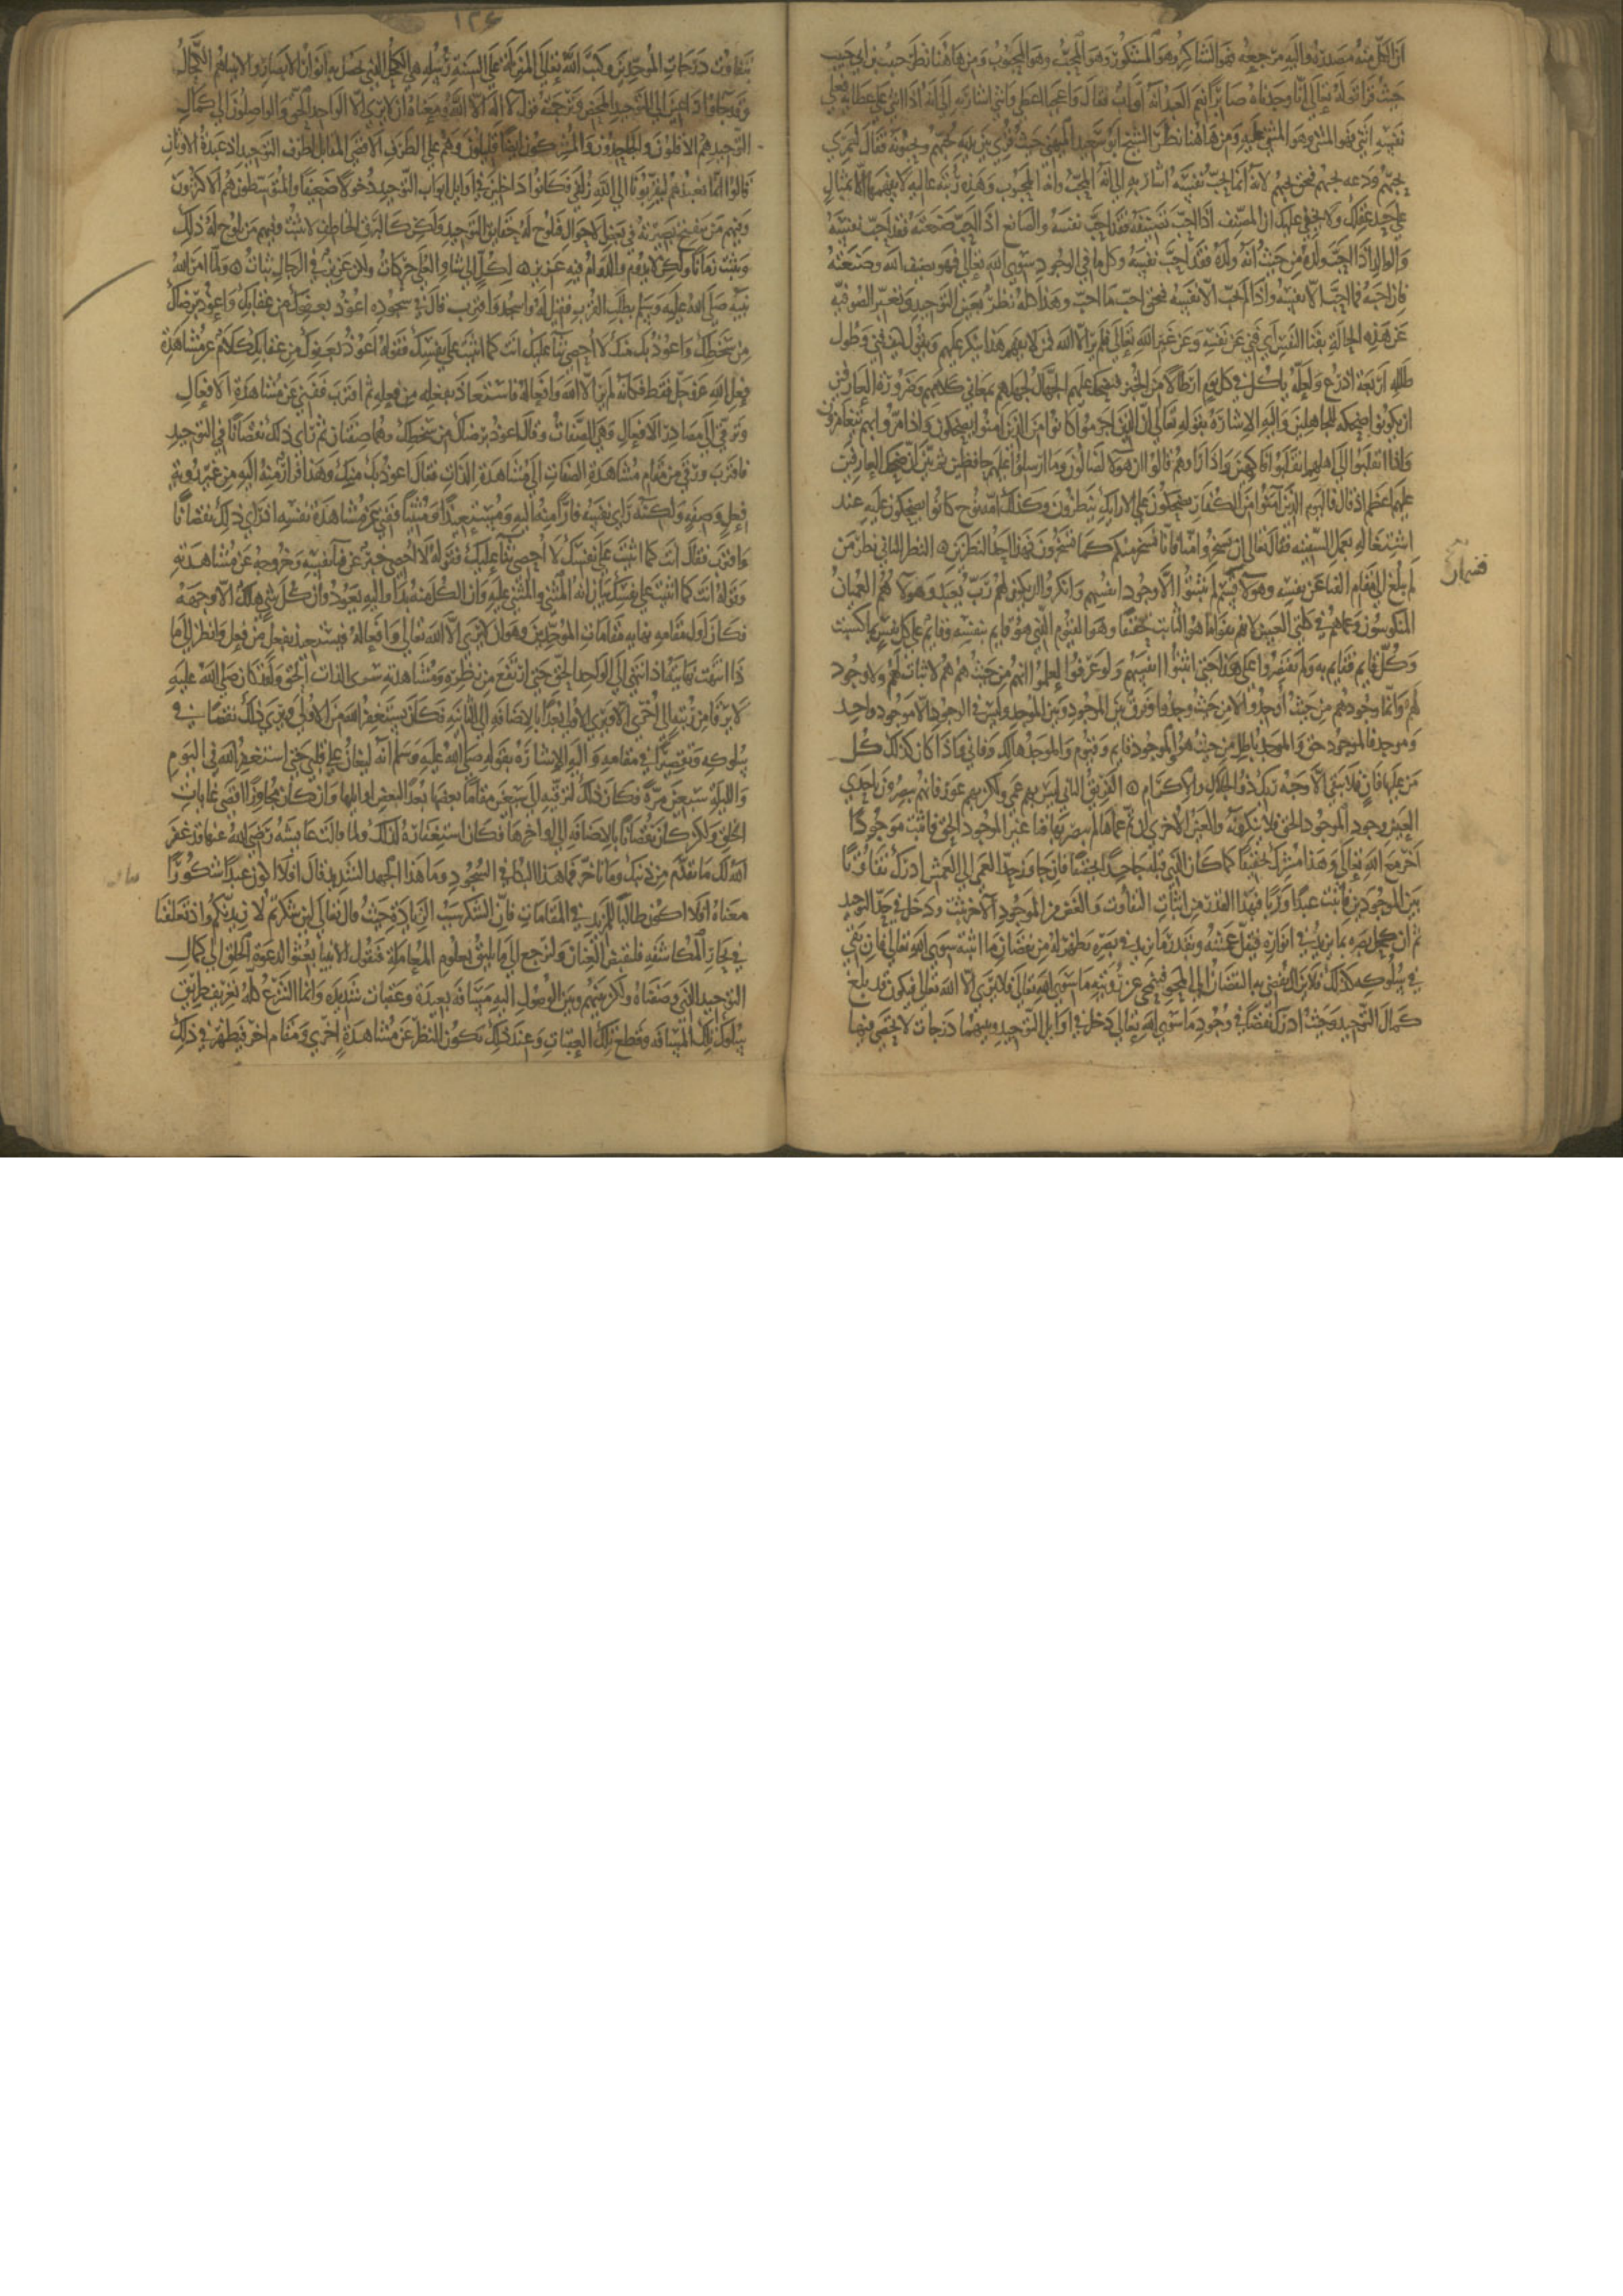 ان الكل منه مصدره واليه مرجعه فهو الشاكر وهو المشكور وهو المحب وهو المحبوب ومن هاهنا نظر حبيب بن ابي حبيب
حيث قرا قوله تعالى انا وجدناه صابرا نعم العبد انه اواب فقال واعجبا اعطى واثنى اشارة الى انه اذا اثنى على عطايه فعلى
نفسه اثنى فهو المثني وهو المثنى عليه ومن هاهنا نظر الشيخ ابو سعيد الميهني حيث قري بين يديه يحبهم ويحبونه فقال لعمري
يحبهم ودعه يحبهم فبحق يحبهم لانه انما يحب نفسه اشار به الى انه المحب وانه المحبوب وهذه رتبة عالية لا تفهمها الا بمثال
على حد عقلك ولا يخفى عليك ان المصنف اذا احب تصنيفه فقد احب نفسه والصانع اذا احب صنعته فقد احب نفسه
والوالد اذا احب ولده من حيث انه ولده فقد احب نفسه وكل ما في الوجود سوى الله تعالى فهو تصنيف الله وصنعته
فان احبه فما احب الا نفسه واذا لم يحب الا نفسه فبحق احب ما احب وهذا كله نظر بعين التوحيد وتعبر الصوفية
عن هذه الحالة بفنا النفس اي فني عن نفسه وعن غير الله تعالى فلم ير الا الله فمن لا يفهم هذا ينكر عليهم ويقول كيف فني وطول
ظله اربعة اذرع ولعله ياكل في كل يوم ارطالا من الخبز فيضحك عليهم الجهال لجهلهم بمعاني كلامهم وضرورة العارفين
ان يكونوا ضحكة للجاهلين واليه الاشارة بقوله تعالى ان الذين اجرموا كانوا من الذين امنوا يضحكون واذا مروا بهم يتغامزون
واذا انقلبوا الى اهلهم انقلبوا فاكهين واذا راوهم قالوا ان هولا لضالون وما ارسلوا عليهم حافظين ثم بين ان ضحك العارفين
عليهم اعظم اذ قال فاليوم الذين امنوا من الكفار يضحكون على الارايك ينظرون وكذلك امة نوح كانوا يضحكون عليه عند
اشتغاله بعمل السفينة فقال تعالى ان تسخروا منا فانا نسخر منكم كما تسخرون فهذا احد النظرين النظر الثاني نظر من
لم يبلغ الى مقام الفنا عن نفسه وهولا قسم لم يثبتوا الا وجود انفسهم وانكروا ان يكون لهم رب يعبد وهولا هم العميان
المنكوسون وعماهم في كلتي العينين لانهم نفوا ما هو الثابت تحقيقا وهو القيوم الذي هو قايم بنفسه وقايم على كل نفس بما كسبت
وكل قايم فقايم به ولم يقتصروا على هذا حتى اثبتوا انفسهم ولو عرفوا لعلموا انهم من حيث هم هم لا ثبات لهم ولا وجود
لهم وانما وجودهم من حيث اوجدوا لا من حيث وجدوا وفرق بين الموجود وبين الموجد وليس في الوجود الا موجود واحد
وموجد فالموجود حق والموجد باطل من حيث هو هو والموجود قايم وقيوم والموجد هالك وفان واذا كان كذلك كل
من عليها فان فلا يبقى الا وجه ربك ذو الجلال والاكرام الفريق الثاني ليس بهم عمى ولكن بهم عور فانهم يبصرون باحدى
العين وجود الموجود الحق فلا ينكرونه والعين الاخرى ان تم عماها لم يبصر بها فنا غير الموجود الحق فاثبت موجودا
اخر مع الله تعالى وهذا مشرك تحقيقا كما كان الذي قبله جاحدا تحقيقا فان جاوز حد العمى الى العمش ادرك تفاوتا
بين الموجودين فاثبت عبدا وربا فبهذا القدر من اثبات التفاوت والنقص من الموجود الاخر يثبت ودخل في حد التوحيد
ثم ان كحل بصره بما يزيد في انواره فيقل عمشه وبقدر ما يزيد في بصره يظهر له من نقصان ما اثبته سوى الله تعالى فان بقي
في سلوكه كذلك فلا يزال يفضي به النقصان الى المحو فينمحي عن رويته ما سوى الله تعالى فلا يرى الا الله تعالى فيكون قد بلغ
كمال التوحيد وحيث ادرك نقصا في وجود ما سوى الله تعالى دخل في اوايل التوحيد وبينهما درجات لا تحصى فبهما
١٢٤
تتفاوت درجات الموحدين وكتب الله تعالى المنزلة على السنة رسله هي الكحل الذي يحصل به انوار الابصار والانبيا هم الكحالون
وقد جاوا داعين الى التوحيد المحض وترجمته قول لا اله الا الله ومعناه ان لا يرى الا الواحد الحق والواصلون الى كمال
التوحيد هم الاقلون والجاحدون والمشركون ايضا قليلون وهم على الطرف الاقصى المقابل لطرف التوحيد اذ عبدة الاوثان
قالوا انما نعبدهم ليقربونا الى الله زلفى فكانوا داخلين في اوايل ابواب التوحيد دخولا ضعيفا والمتوسطون هم الاكثرون
وفيهم من تنفتح بصيرته في بعض الاحوال فتلوح له حقايق التوحيد ولكن كالبرق الخاطف لا يثبت وفيهم من يلوح له ذلك
ويثبت زمانا ولكن لا يدوم والدوام فيه عزيز لكل الى شاو العلى حركات ولكن عزيز في الرجال ثبات ولما امر الله
نبيه صلى الله عليه وسلم بطلب القرب فقيل له واسجد واقترب قال في سجوده اعوذ بعفوك من عقابك واعوذ برضاك
من سخطك واعوذ بك منك لا احصي ثنا عليك انت كما اثنيت على نفسك فقوله اعوذ بعفوك من عقابك كلام عن مشاهدة
فعل الله عز وجل فقط فكانه لم ير الا الله وافعاله فاستعاذ بفعله من فعله ثم اقترب ففني عن مشاهدة الافعال
وترقى الى مصادر الافعال وهي الصفات وقال اعوذ برضاك من سخطك وهما صفتان ثم راى ذلك نقصانا في التوحيد
فاقترب ورقى من مقام مشاهدة الصفات الى مشاهدة الذات فقال اعوذ بك منك وهذا فرار منه اليه من غير روية
فعل وصفة ولكنه راى نفسه فارا منه اليه ومستعيذا ومثنيا ففني عن مشاهدة نفسه اذ راى ذلك نقصانا
واقترب فقال انت كما اثنيت على نفسك لا احصي ثنا عليك فقوله لا احصي خبر عن فنا نفسه وخروجه عن مشاهدته
وقوله انت كما اثنيت على نفسك بيان انه المثني والمثنى عليه وان الكل منه بدا واليه يعود وان كل شي هالك الا وجهه
فكان اول مقامه نهاية مقامات الموحدين وهو ان لا يرى الا الله تعالى وافعاله فيستعيذ بفعل من فعل وانظر الى ما
ذا انتهت نهايته اذا انتهى الى الواحد الحق حتى ارتفع من نظره ومشاهدته سوى الذات الحق ولقد كان صلى الله عليه
لا يرقا من رتبة الى اخرى الا ويرى الاولى بعدا بالاضافة الى الثانية فكان يستغفر الله من الاولى ويرى ذلك نقصانا في
سلوكه وتقصيرا في مقامه واليه الاشارة بقوله صلى الله عليه وسلم انه ليغان على قلبي حتى استغفر الله في اليوم
والليلة سبعين مرة فكان ذلك لترقيه الى سبعين مقاما بعضها بعد البعض اوايلها وان كان مجاوزا اقصى غايات
الخلق ولكن كان نقصانا بالاضافة الى اواخرها فكان استغفاره لذلك ولما قالت عايشة رضي الله عنها قد غفر
الله لك ما تقدم من ذنبك وما تاخر فما هذا البكا في السجود وما هذا الجهد الشديد قال افلا اكون عبدا شكورا
معناه افلا اكون طالبا للمزيد في المقامات فان الشكر سبب الزيادة حيث قال تعالى لئن شكرتم لازيدنكم واذ تغلغلنا
في بحار المكاشفة فلنقبض العنان ولنرجع الى ما يليق بعلوم المعاملة فنقول الانبيا بعثوا لدعوة الخلق الى كمال
التوحيد الذي وصفناه ولكن بينهم وبين الوصول اليه مسافة بعيدة وعقبات شديدة وانما الشرع كله تعريف طريق
سلوك تلك المسافة وقطع تلك العقبات وعند ذلك يكون النظر عن مشاهدة اخرى ومقام اخر فيظهر في ذلك